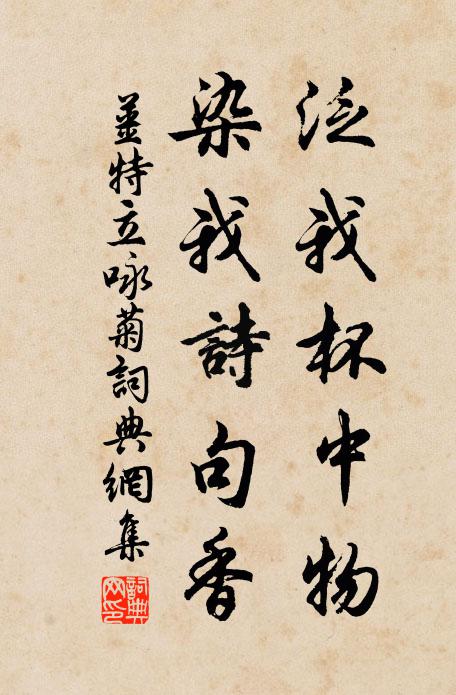 泛我杯中物
染我詩句香
姜特立咏菊詞典網集
詞典網印